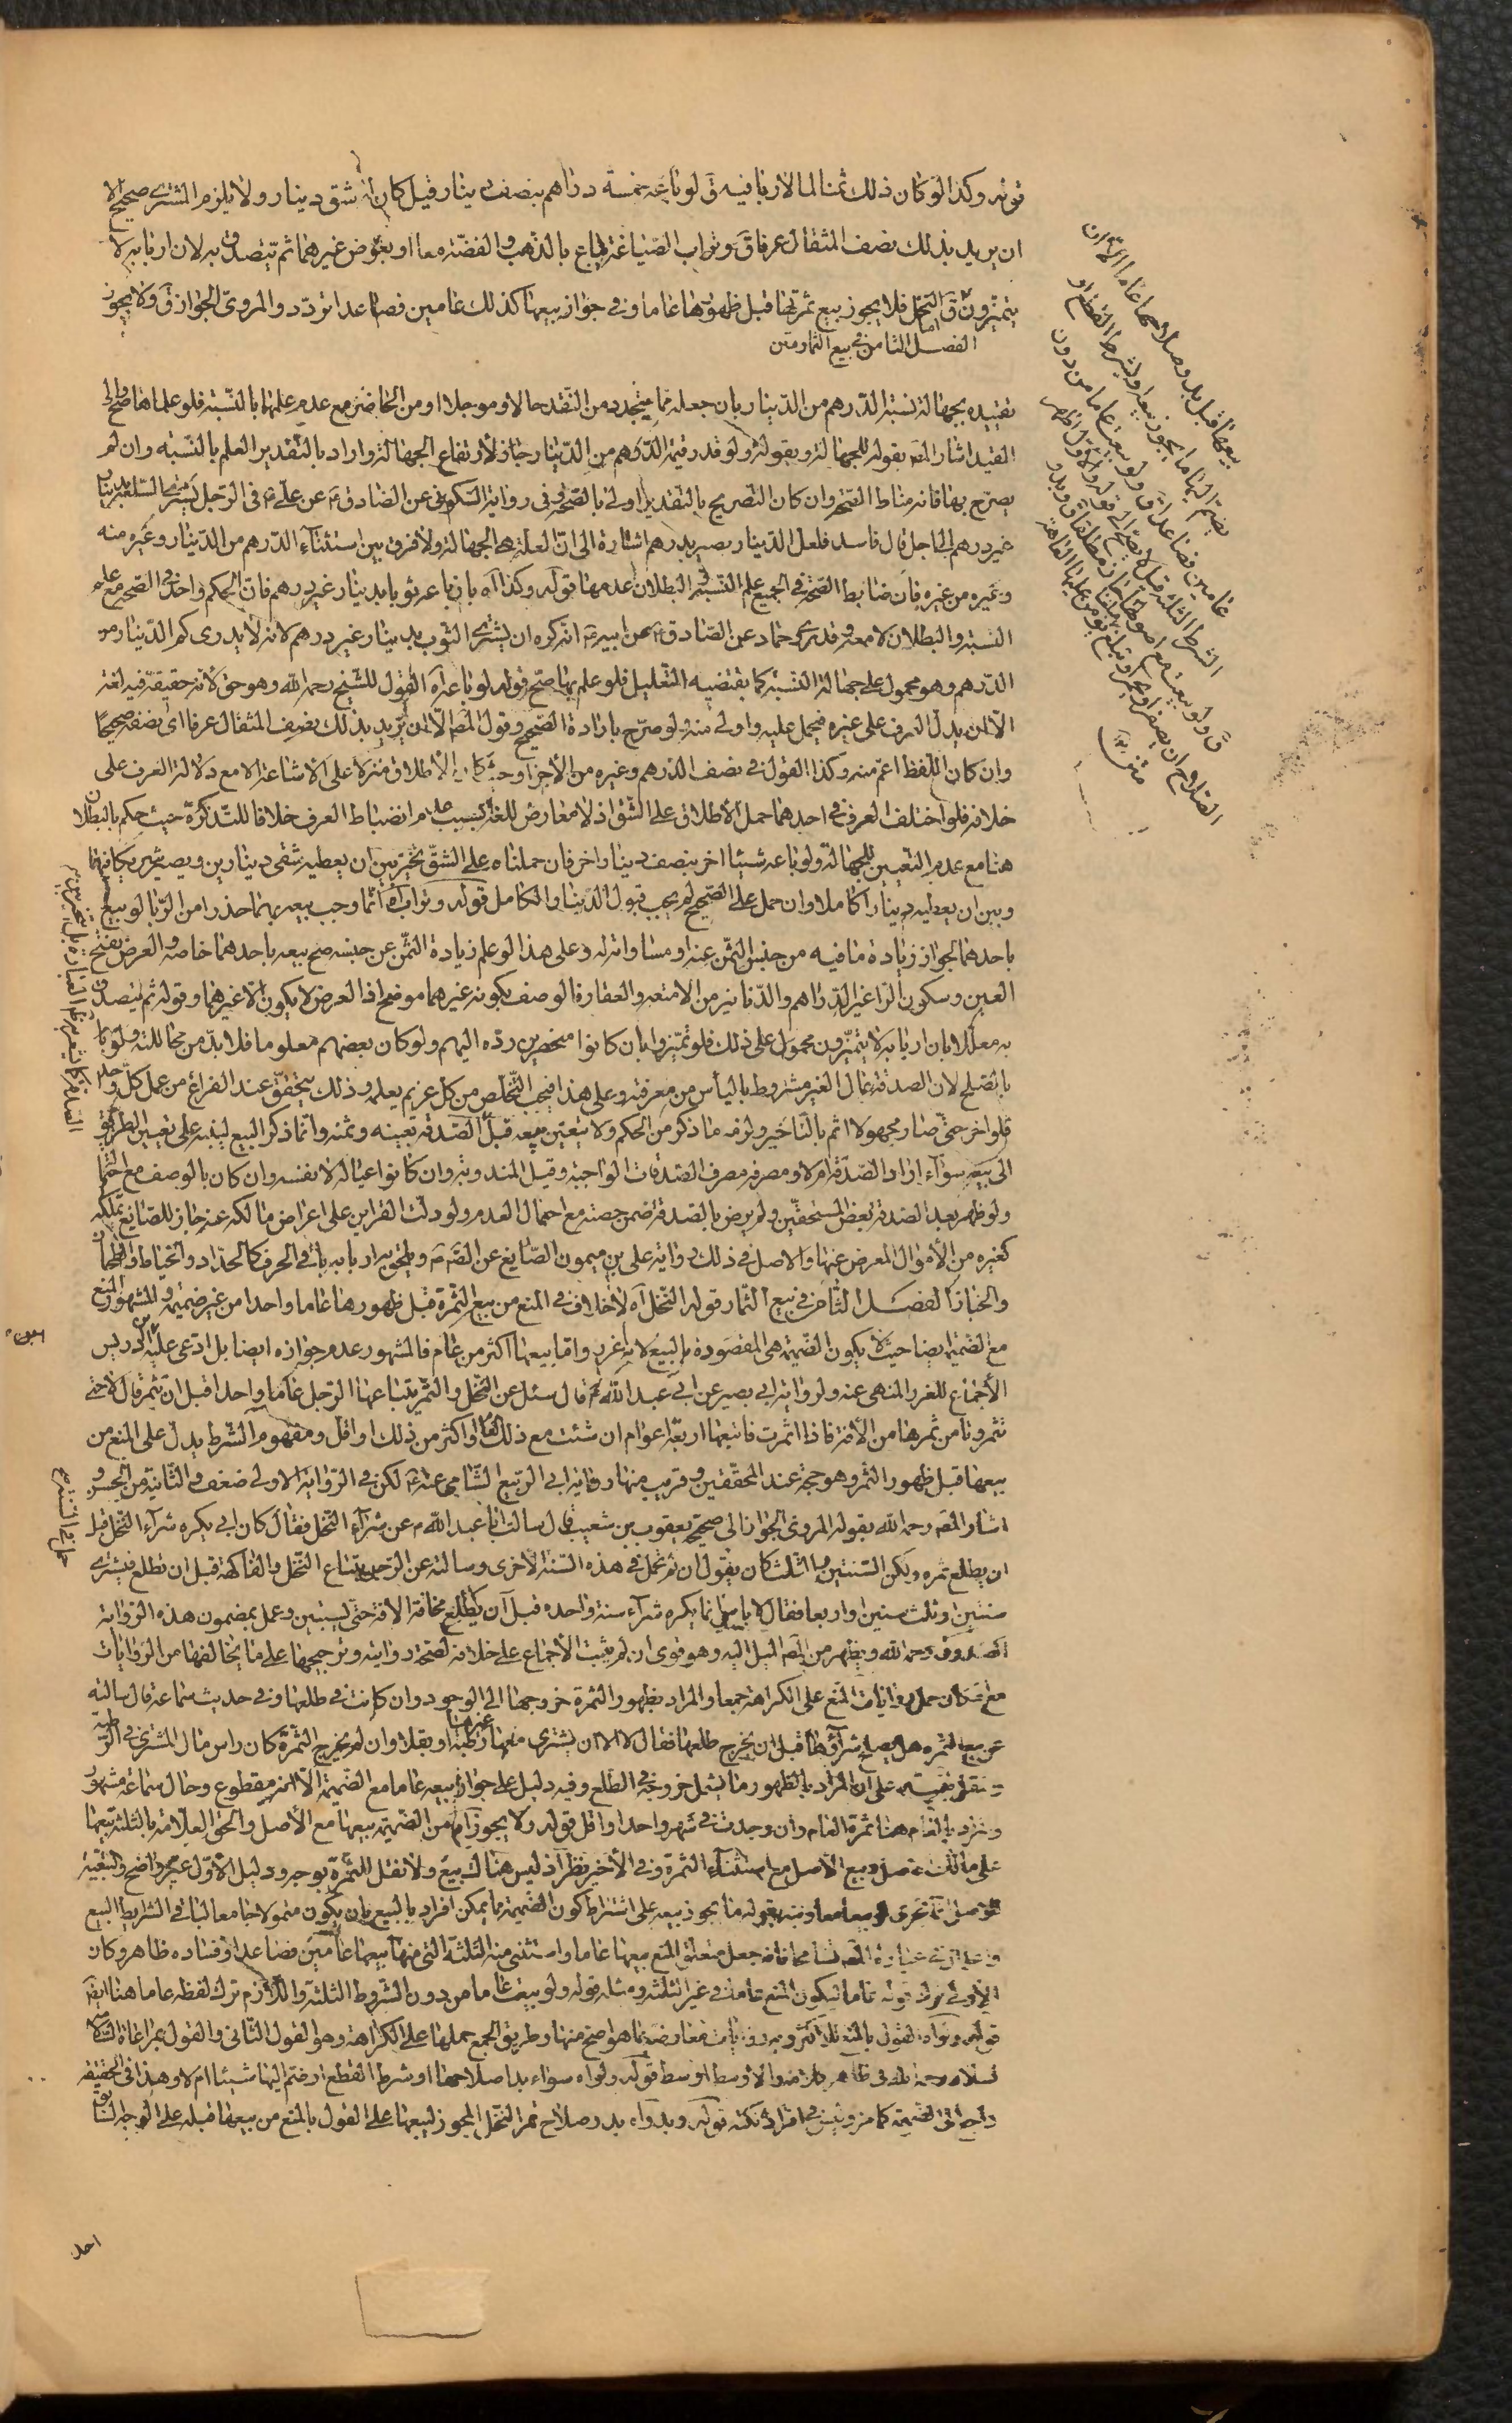 ثوبه وكذا لو كان ذلك ثمنا لما لا ربا فيه ق ولو باعه خمسة دراهم بنصف دينار قيل كان له شق دينار ولا يلزم المشتري صحيح الا
ان يريد بذلك نصف المثقال عرفا ق وتراب الصياغة يباع بالذهب والفضة معا او بعوض غيرهما ثم يتصدق به لان اربابه لا
يتميزون ق اما النخل فلا يجوز بيع ثمرتها قبل ظهورها عاما وفي جواز بيعها كذلك عامين فصاعدا تردد والمروي الجواز ق ولا يجوز
الفصل الثامن في بيع الثمار متن
بيعها قبل بدو صلاحها عاما الا ان
يضم اليها ما يجوز بيعه او بشرط القطع او
عامين فصاعدا ق ولو بيعت عاما من دون
الشرط الثلثة قيل لا يصح
ق ولو بيعت مع اصولها جاز مطلقا ق وبدو
الصلاح ان يصفر او يحمر او يبلغ يؤمن عليها العاهة
متن
تقييده بجهالة نسبة الدرهم من الدينار بان جعله مما يتجدد من النقد حالا او مؤجلا او من الحاضر مع عدم علمهما بالنسبة فلو علماها صح والى
القيد اشار المص بقوله للجهالة وبقوله ولو قدر قيمة الدرهم من الدينار جاز لارتفاع الجهالة واراد بالتقدير العلم بالنسبة وان لم
يصرح بها فانه مناط الصحة وان كان التصريح بالتقدير اولى بالصحة وفي رواية السكوني عن الصادق ع عن علي ع في الرجل يشتري السلعة بدينار
غير درهم الى اجل قال فاسد فلعل الدينار يصير بدرهم اشارة الى ان العلة هي الجهالة ولا فرق بين استثناء الدرهم من الدينار وغيره منه
وغيره من غيره فان ضابط الصحة في الجميع علم النسبة والبطلان عدمها قوله وكذا اه بان باعه ثوبا بدينار غير درهم فان الحكم واحد في الصحة مع علم
النسبة والبطلان لا معه وقد روى حماد عن الصادق ع عن ابيه ع انه كره ان يشتري الثوب بدينار غير درهم لانه لا يدري كم الدينار من
الدرهم وهو محمول على جهالة النسبة كما يقتضيه التعليل فلو علم بها صح قوله لو باعه اه القول للشيخ رحمه الله وهو حق لانه حقيقة فيه لغة
الا ان يدل العرف على غيره فيحمل عليه واولى منه لو صرح بارادة الصحيح وقول المص الا ان يريد بذلك نصف المثقال عرفا اي نصفه صحيحا
وان كان اللفظ اعم منه وكذا القول في نصف الدرهم وغيره من الاجزاء وحيث كان الاطلاق منزلا على الاشاعة الا مع دلالة العرف على
خلافه فلو اختلف العرف في احدهما حمل الاطلاق على الشق اذ لا معارض للغة بسبب عدم انضباط العرف خلافا للتذكرة حيث حكم بالبطلان
هنا مع عدم التعيين للجهالة ولو باعه شيئا اخر بنصف دينار اخر فان حملناه على الشق تخير بين ان يعطيه شقي دينارين ويصير شريكا فيهما
وبين ان يعطيه دينارا كاملا وان حمل على الصحيح لم يجب قبول الدينار الكامل قوله وتراب اه انما وجب بيعه بهما حذرا من الربا لو بيع
باحدهما لجواز زيادة ما فيه من جنس الثمن عنه او مساواته له وعلى هذا لو علم زيادة الثمن عن جنسه صح بيعه باحدهما خاصة والعرض بفتح
العين وسكون الراء غير الدراهم والدنانير من الامتعة والعقار فالوصف بكونه غيرهما موضح اذ العرض لا يكون الا غيرهما وقوله ثم يتصدق
به معللا بان اربابه لا يتميزون محمول على ذلك فلو تميزوا بان كانوا منحصرين رده اليهم ولو كان بعضهم معلوما فلا بد من محاللته ولو
بالصلح لان الصدقة بمال الغير مشروط بالياس من معرفته وعلى هذا فيجب التخلص من كل غريم يعلمه وذلك يتحقق عند الفراغ من عمل كل واحد
فلو اخر حتى صار مجهولا اثم بالتاخير ولزمه ما ذكر من الحكم ولا يتعين بيعه قبل الصدقة بعينه وثمنه وانما ذكر البيع لينبه على تعيين الطريق
الى بيعه سواء اراد الصدقة ام لا ومصرفه مصرف الصدقات الواجبة وقيل المندوبة وان كانوا عياله لا نفسه وان كان بالوصف مع
ولو ظهر بعد الصدقة بعض المستحقين ولم يرض بالصدقة ضمن حصته مع احتمال العدم ولو دلت القراين على اعراض مالكه عنه جاز للصائغ تملكه
كغيره من الاموال المعرض عنها والاصل في ذلك رواية علي بن ميمون الصايغ عن الص ع ويلحق به ارباب باقي الحرف كالحداد والخياط والطحان
والخباز الفصل الثامن في بيع الثمار قوله النخل اه لا خلاف في المنع من بيع الثمرة قبل ظهورها عاما واحدا من غير ضميمة والمشهور المنع
مع الضميمة ايضا حيث لا يكون الضميمة هي المقصودة بالبيع لانه غرر واما بيعها اكثر من عام فالمشهور عدم جوازه ايضا بل ادعى عليه ابن ادريس
الاجماع للغرر المنهي عنه ولرواية ابي بصير عن ابي عبد الله ع قال سئل عن النخل والثمر يبتاعها الرجل عاما واحدا قبل ان يثمر قال لا حتى
تثمر وتامن ثمرها من الافة فاذا اثمرت فابتعها اربعة اعوام ان شئت مع ذلك العام او اكثر من ذلك او اقل ومفهوم الشرط يدل على المنع من
بيعها قبل ظهور الثمر وهو حجة عند المحققين وقريب منها رواية ابي الربيع الشامي عنه ع لكن في الرواية الاولى ضعف والثانية من الحسن و
اشار المص رحمه الله بقوله المروي الجواز الى صحيحة يعقوب بن شعيب قال سالت ابا عبد الله ع عن شراء النخل فقال كان ابي يكره شراء النخل قبل
ان يطلع ثمره ولكن السنتين والثلث كان يقول ان لم تحمل في هذه السنة الاخرى وسالته عن الرجل يبتاع النخل والفاكهة قبل ان تطلع فيشتري
سنتين او ثلث سنين او اربعا فقال لا باس انما يكره شراء سنة واحدة قبل ان يطلع مخافة الافة حتى يستبين وعمل بمضمون هذه الرواية
الصدوق رحمه الله ويظهر من المص الميل اليه وهو قوي ان لم يثبت الاجماع على خلافه لصحة روايته وترجيحها على ما يخالفها من الروايات
مع امكان حمل روايات المنع على الكراهة جمعا والمراد بظهور الثمرة خروجها الى الوجود وان كانت في طلعها وفي حديث سماعة قال سالته
عن بيع الثمرة هل يصلح شراؤها قبل ان يخرج طلعها فقال لا الا ان يشتري معها غيرها رطبة او بقلا وان لم يخرج الثمرة كان راس مال المشتري في الرطبة
على ان المراد بالظهور ما يشمل خروجه في الطلع وفيه دليل على جواز بيعه عاما مع الضميمة الا انه مقطوع وحال سماعة مشهور
والمراد بالعام هنا ثمرة العام وان وجدت في شهر واحد او اقل قوله ولا يجوز اه من الضميمة بيعها مع الاصل والحق العلامة بالثلثة بيعها
على مالك الاصل وبيع الاصل مع استثناء الثمرة وفي الاخير نظر اذ ليس هناك بيع ولا نقل للثمرة بوجه ودليل الاول غير واضح
ونبه بقوله ما يجوز بيعه على اشتراط كون الضميمة مما يمكن افراده بالبيع بان يكون متمولا جامعا لباقي الشرايط البيع
واعلم ان في عبارة المص تسامحا فانه جعل متعلق المنع بيعها عاما واستثنى منه الثلثة التي منها بيعها عامين فصاعدا وفساده ظاهر وكان
الاولى ترك قوله عاما ليكون المنع عاما في غير الثلثة ومثله قوله ولو بيعت عاما من دون الشروط الثلثة واللازم ترك لفظه عاما هنا ايضا
قوله ولو اه القول بالمنع للاكثر وبه روايات معارضة بما هو اصح منها وطريق الجمع حملها على الكراهة وهو القول الثاني والقول بمراعاة السلامة
لسلار رحمه الله قوله ولو اه سواء بدا صلاحها او شرط القطع او ضم اليها شيئا ام لا وهذا في الحقيقة
راجع الى الضميمة كما مر قوله وبدو اه بدو صلاح ثمر النخل المجوز لبيعها على القول بالمنع من بيعها قبله على الوجه السابق